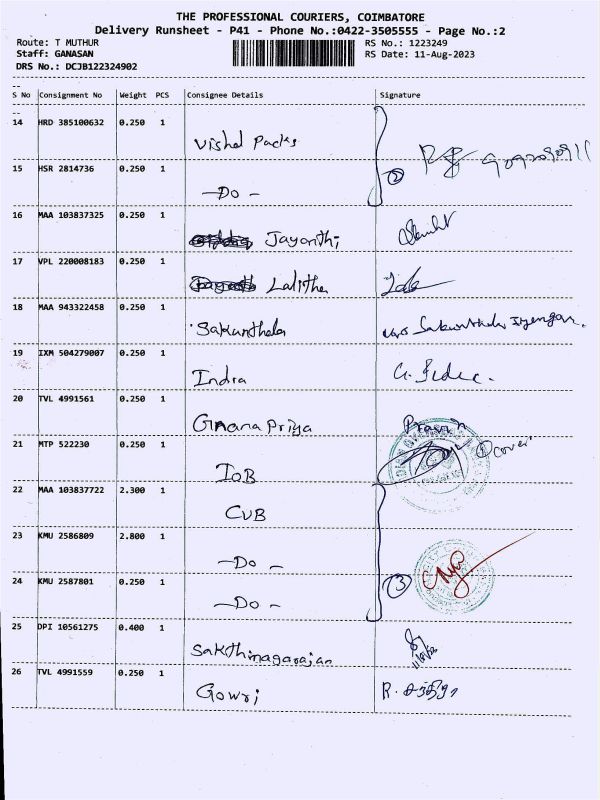 THE PROFESSIONAL COURIERS, COIMBATORE
Delivery Runsheet - P41 - Phone No.:0422-3505555 - Page No.:2
Route: T MUTHUR RS No.: 1223249
Staff: GANASAN RS Date: 11-Aug-2023
DRS No.: DCJB122324902
S No Consignment No Weight PCS Consignee Details Signature
14 HRD 385100632 0.250 1
Vishal Packs
15 HSR 2814736 0.250 1 2
—Do—
16 MAA 103837325 0.250 1
Jayanthi
17 VPL 220008183 0.250 1
Lalitha
18 MAA 943322458 0.250 1
Sakunthala Sakunthala Iyengar.
19 IXM 504279007 0.250 1
Indra
20 TVL 4991561 0.250 1
Gnana Priya Pravin
21 MTP 522230 0.250 1
IOB
22 MAA 103837722 2.300 1
CUB
23 KMU 2586809 2.800 1
—Do—
24 KMU 2587801 0.250 1 3
—Do—
25 DPI 10561275 0.400 1
Sakthinagarajan
26 TVL 4991559 0.250 1
Gowri R.